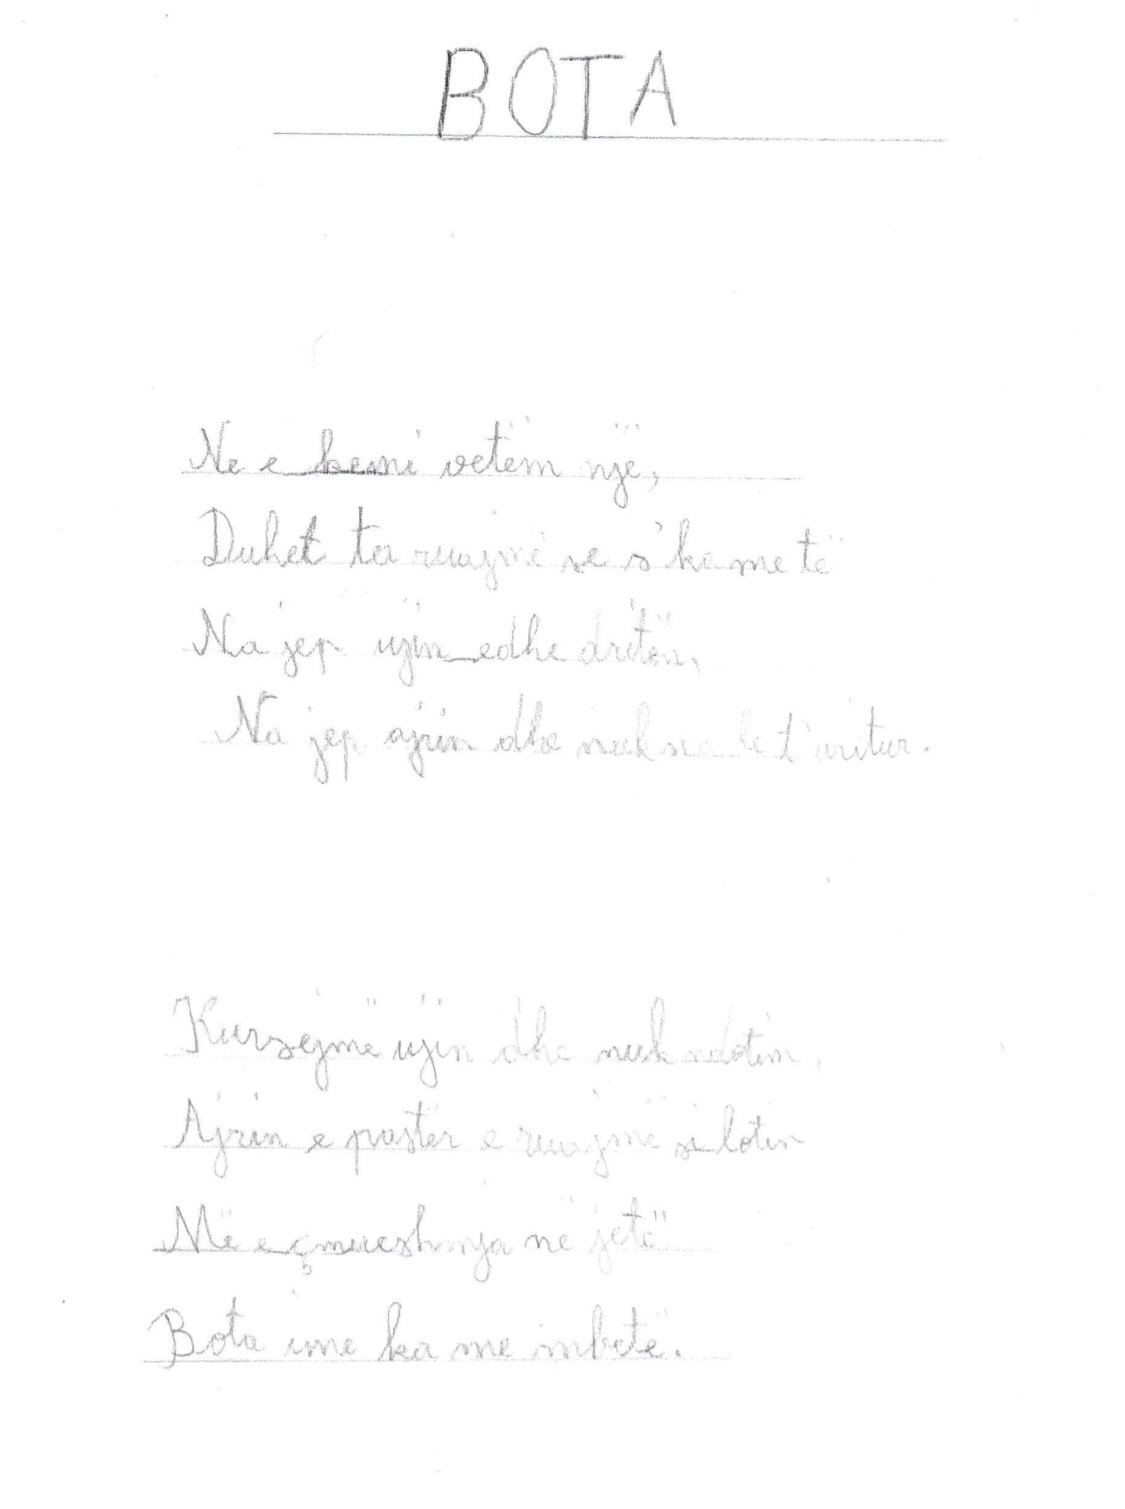 BOTA
Ne e kemi vetëm një,
Duhet ta ruajmë se s'ka me të
Na jep ujin edhe dritën,
Na jep ajrin dhe nuk na le t'uritur.
Kursejmë ujin dhe nuk ndotim,
Ajrin e pastër e ruajmë si lotin
Më e çmueshmja në jetë
Bota ime ka me mbetë.